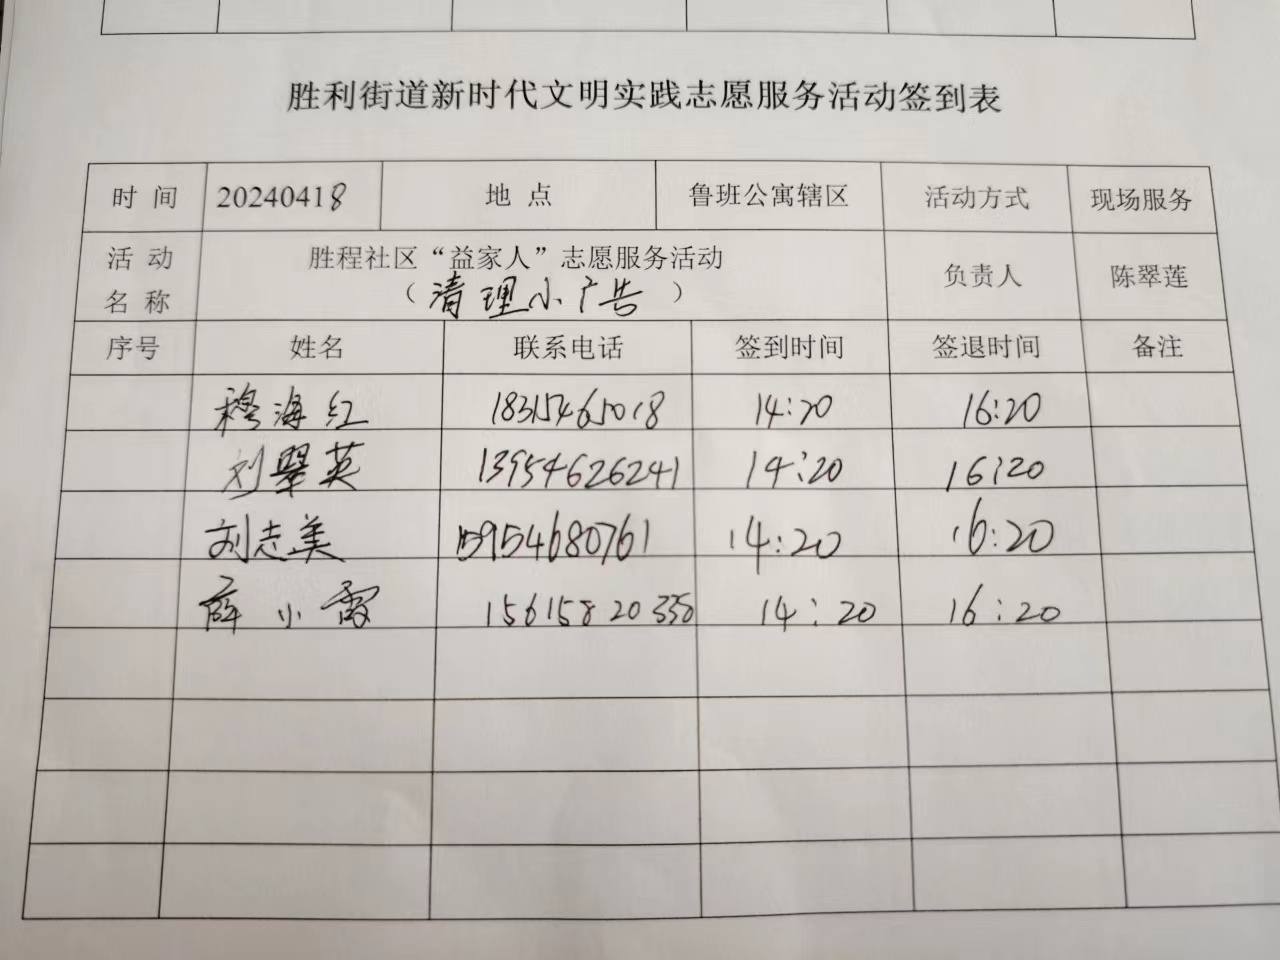 胜利街道新时代文明实践志愿服务活动签到表
时 间 20240418 地 点 鲁班公寓辖区 活动方式 现场服务
活 动 名 称 胜程社区“益家人”志愿服务活动 负责人 陈翠莲
（清理小广告）
序号 姓名 联系电话 签到时间 签退时间 备注
穆海红 18315465018 14:20 16:20
刘翠英 13954626241 14:20 16:20
刘志美 15954680761 14:20 16:20
薛小霞 15615820338 14:20 16:20